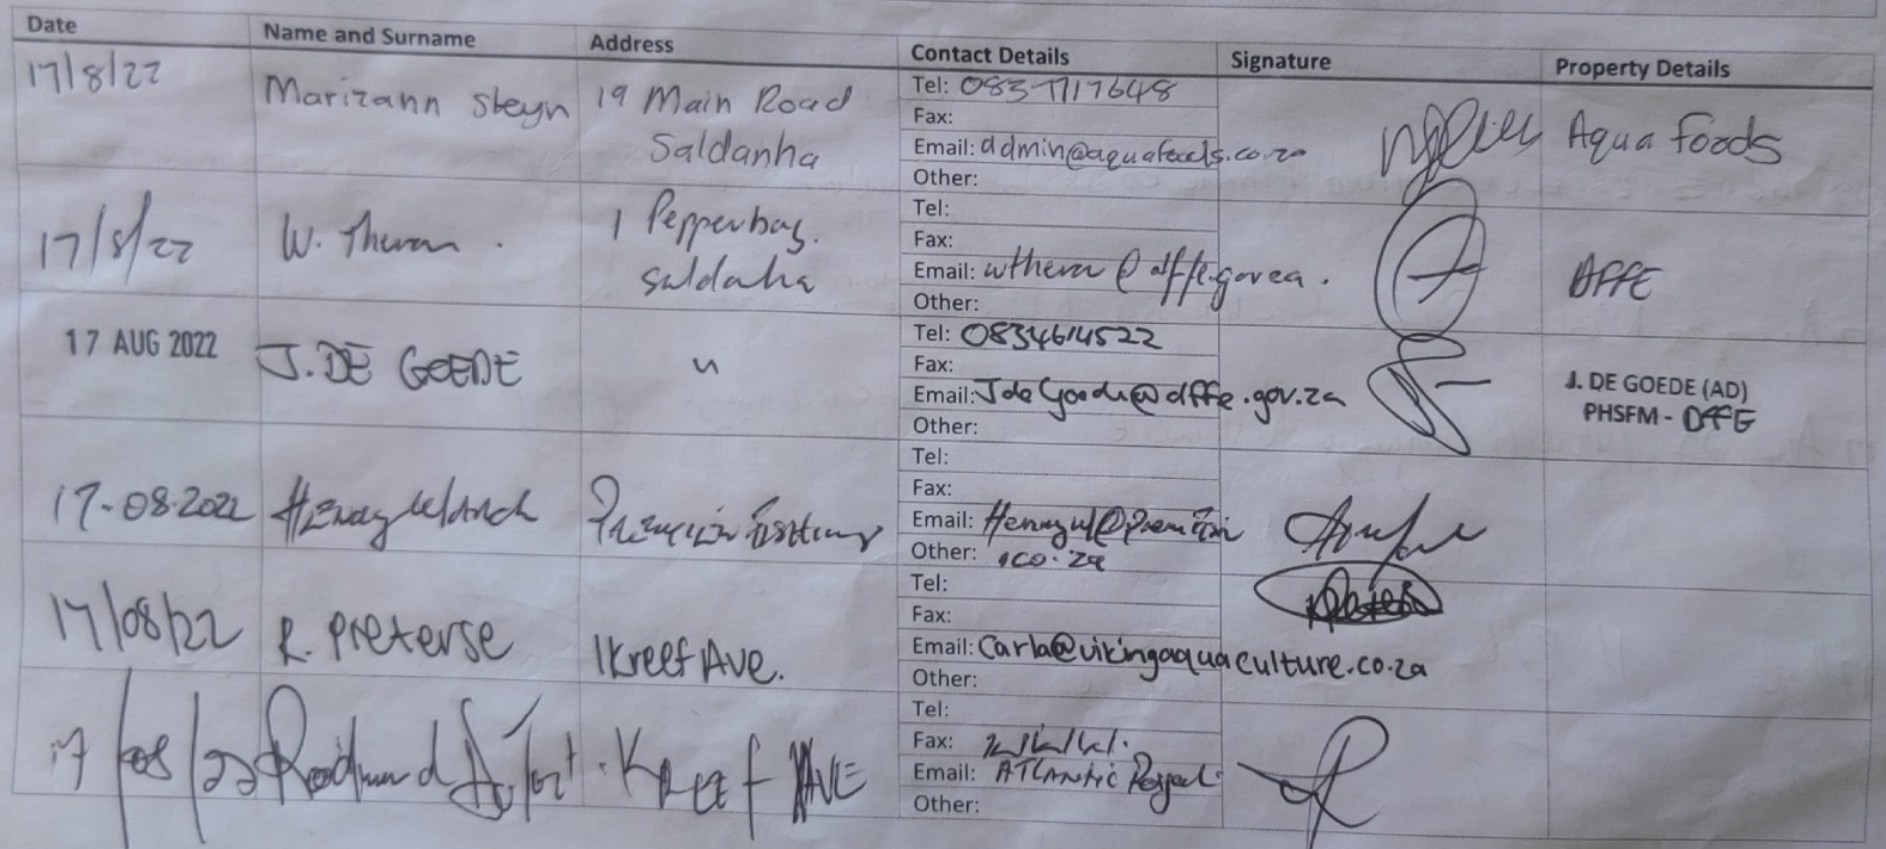 Date Name and Surname Address Contact Details Signature Property Details
17/8/22 Marizann Steyn 19 Main Road Saldanha
Tel: 083
Fax:
Email: admin@aquafoods.co.za
Other:
Aqua foods
17/8/22 W. Theron . 1 Pepperbay. Saldanha
Tel:
Fax:
Email:
Other:
DFFE
17 AUG 2022 J. DE GOEDE "
Tel: 0834614522
Fax:
Email: JdeGoede@dffe.gov.za
Other:
J. DE GOEDE (AD)
PHSFM - DFFE
17-08-2022 Premier Fishing
Tel:
Fax:
Email:
Other: .co.za
17/08/22 R. Preterse 1 Kreef Ave.
Tel:
Fax:
Email: Carla@vikingaquaculture.co.za
Other:
17/08/22 KREEf AVE
Tel:
Fax:
Email: ATLANTIC
Other: